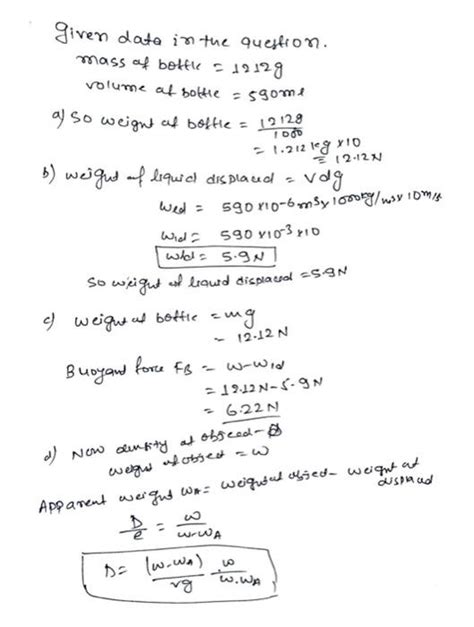 Given data in the question.
mass of bottle = 1212g
volume of bottle = 590ml
a) So weight of bottle = 1212g / 1000
= 1.212 kg x10
= 12.12N
b) weight of liquid displaced = Vdg
Wld = 590 x10-6 m3 x 1000kg/m3 x 10m/s
Wld = 590 x10-3 x10
Wld = 5.9N
So weight of liquid displaced = 5.9N
c) weight of bottle = mg
= 12.12N
Buoyant force FB = W-Wld
= 12.12N-5.9N
= 6.22N
d) Now density of object - D
weight of object = W
Apparent weight WA = weight of object - weight of displaced
D/e = W/W-WA
D = (W-WA)/vg W/W-WA